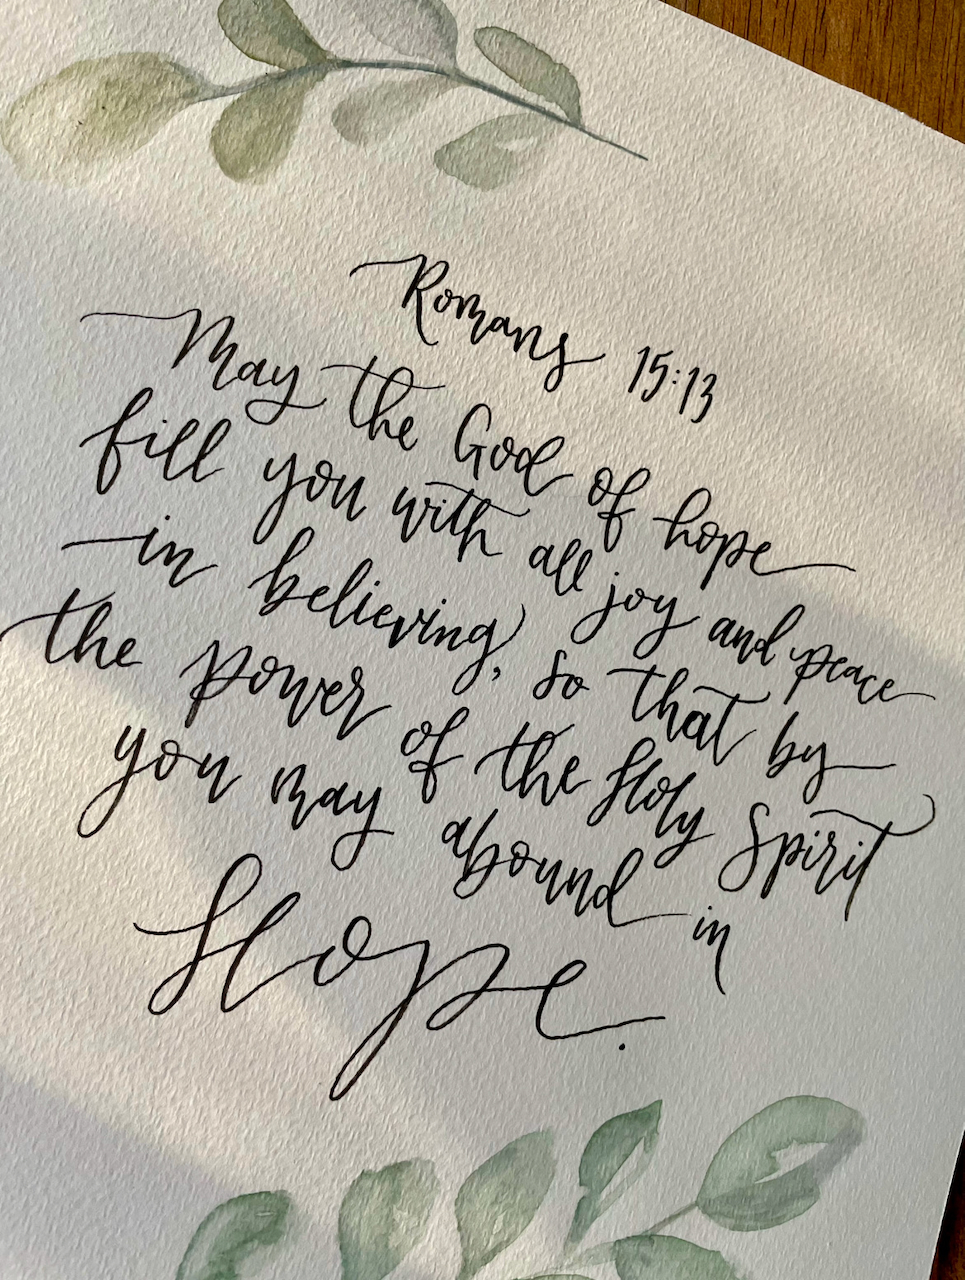 Romans 15:13
May the God of hope
fill you with all joy and peace
in believing, so that by
the power of the Holy Spirit
you may abound in
Hope.